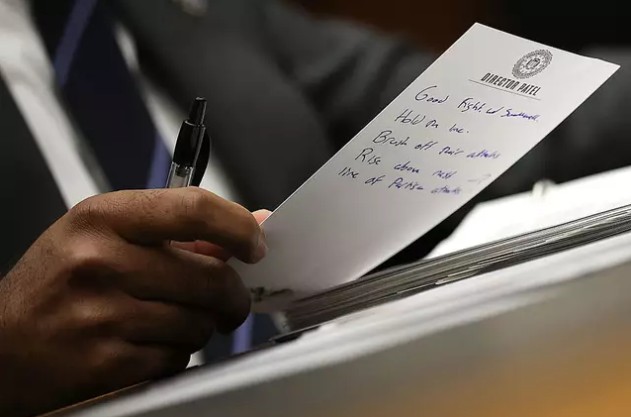 DIRECTOR PATEL
Good Fight w/ Swalwell.
Hold the line.
Brush off their attacks
Rise above next
line of Partisan attacks